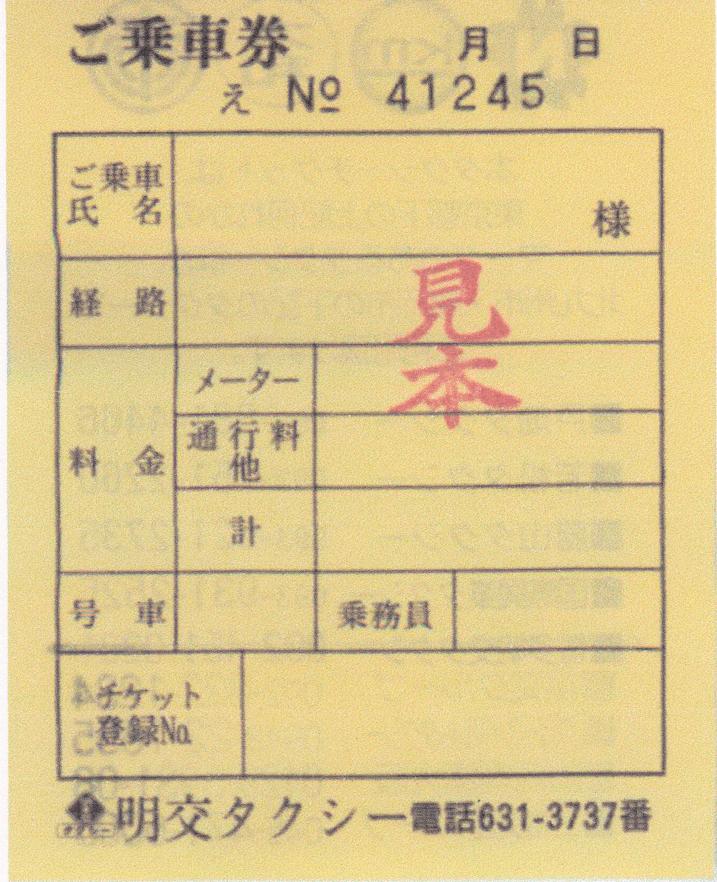 ご乗車券 月 日
え № 41245
ご乗車
氏 名
様
経 路
見
本
料 金
メーター
通行料
他
計
号 車
乗務員
チケット
登録No.
明交タクシー電話631-3737番